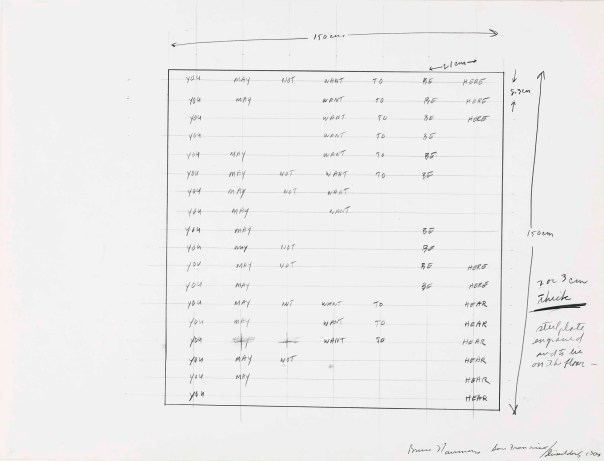 150cm
21cm
YOU MAY NOT WANT TO BE HERE
8.3cm
YOU MAY WANT TO BE HERE
YOU WANT TO BE HERE
YOU WANT TO BE
YOU MAY WANT TO BE
YOU MAY NOT WANT TO BE
YOU MAY NOT WANT
YOU MAY WANT
YOU MAY BE
150cm
YOU MAY NOT BE
YOU MAY NOT BE HERE
YOU MAY BE HERE
2 or 3 cm
thick
YOU MAY NOT WANT TO HEAR
YOU MAY WANT TO HEAR
steel plate
YOU WANT TO HEAR
engraved
and to lie
YOU MAY NOT HEAR
on the floor –
YOU MAY HEAR
YOU HEAR
Bruce Nauman San Francisco/